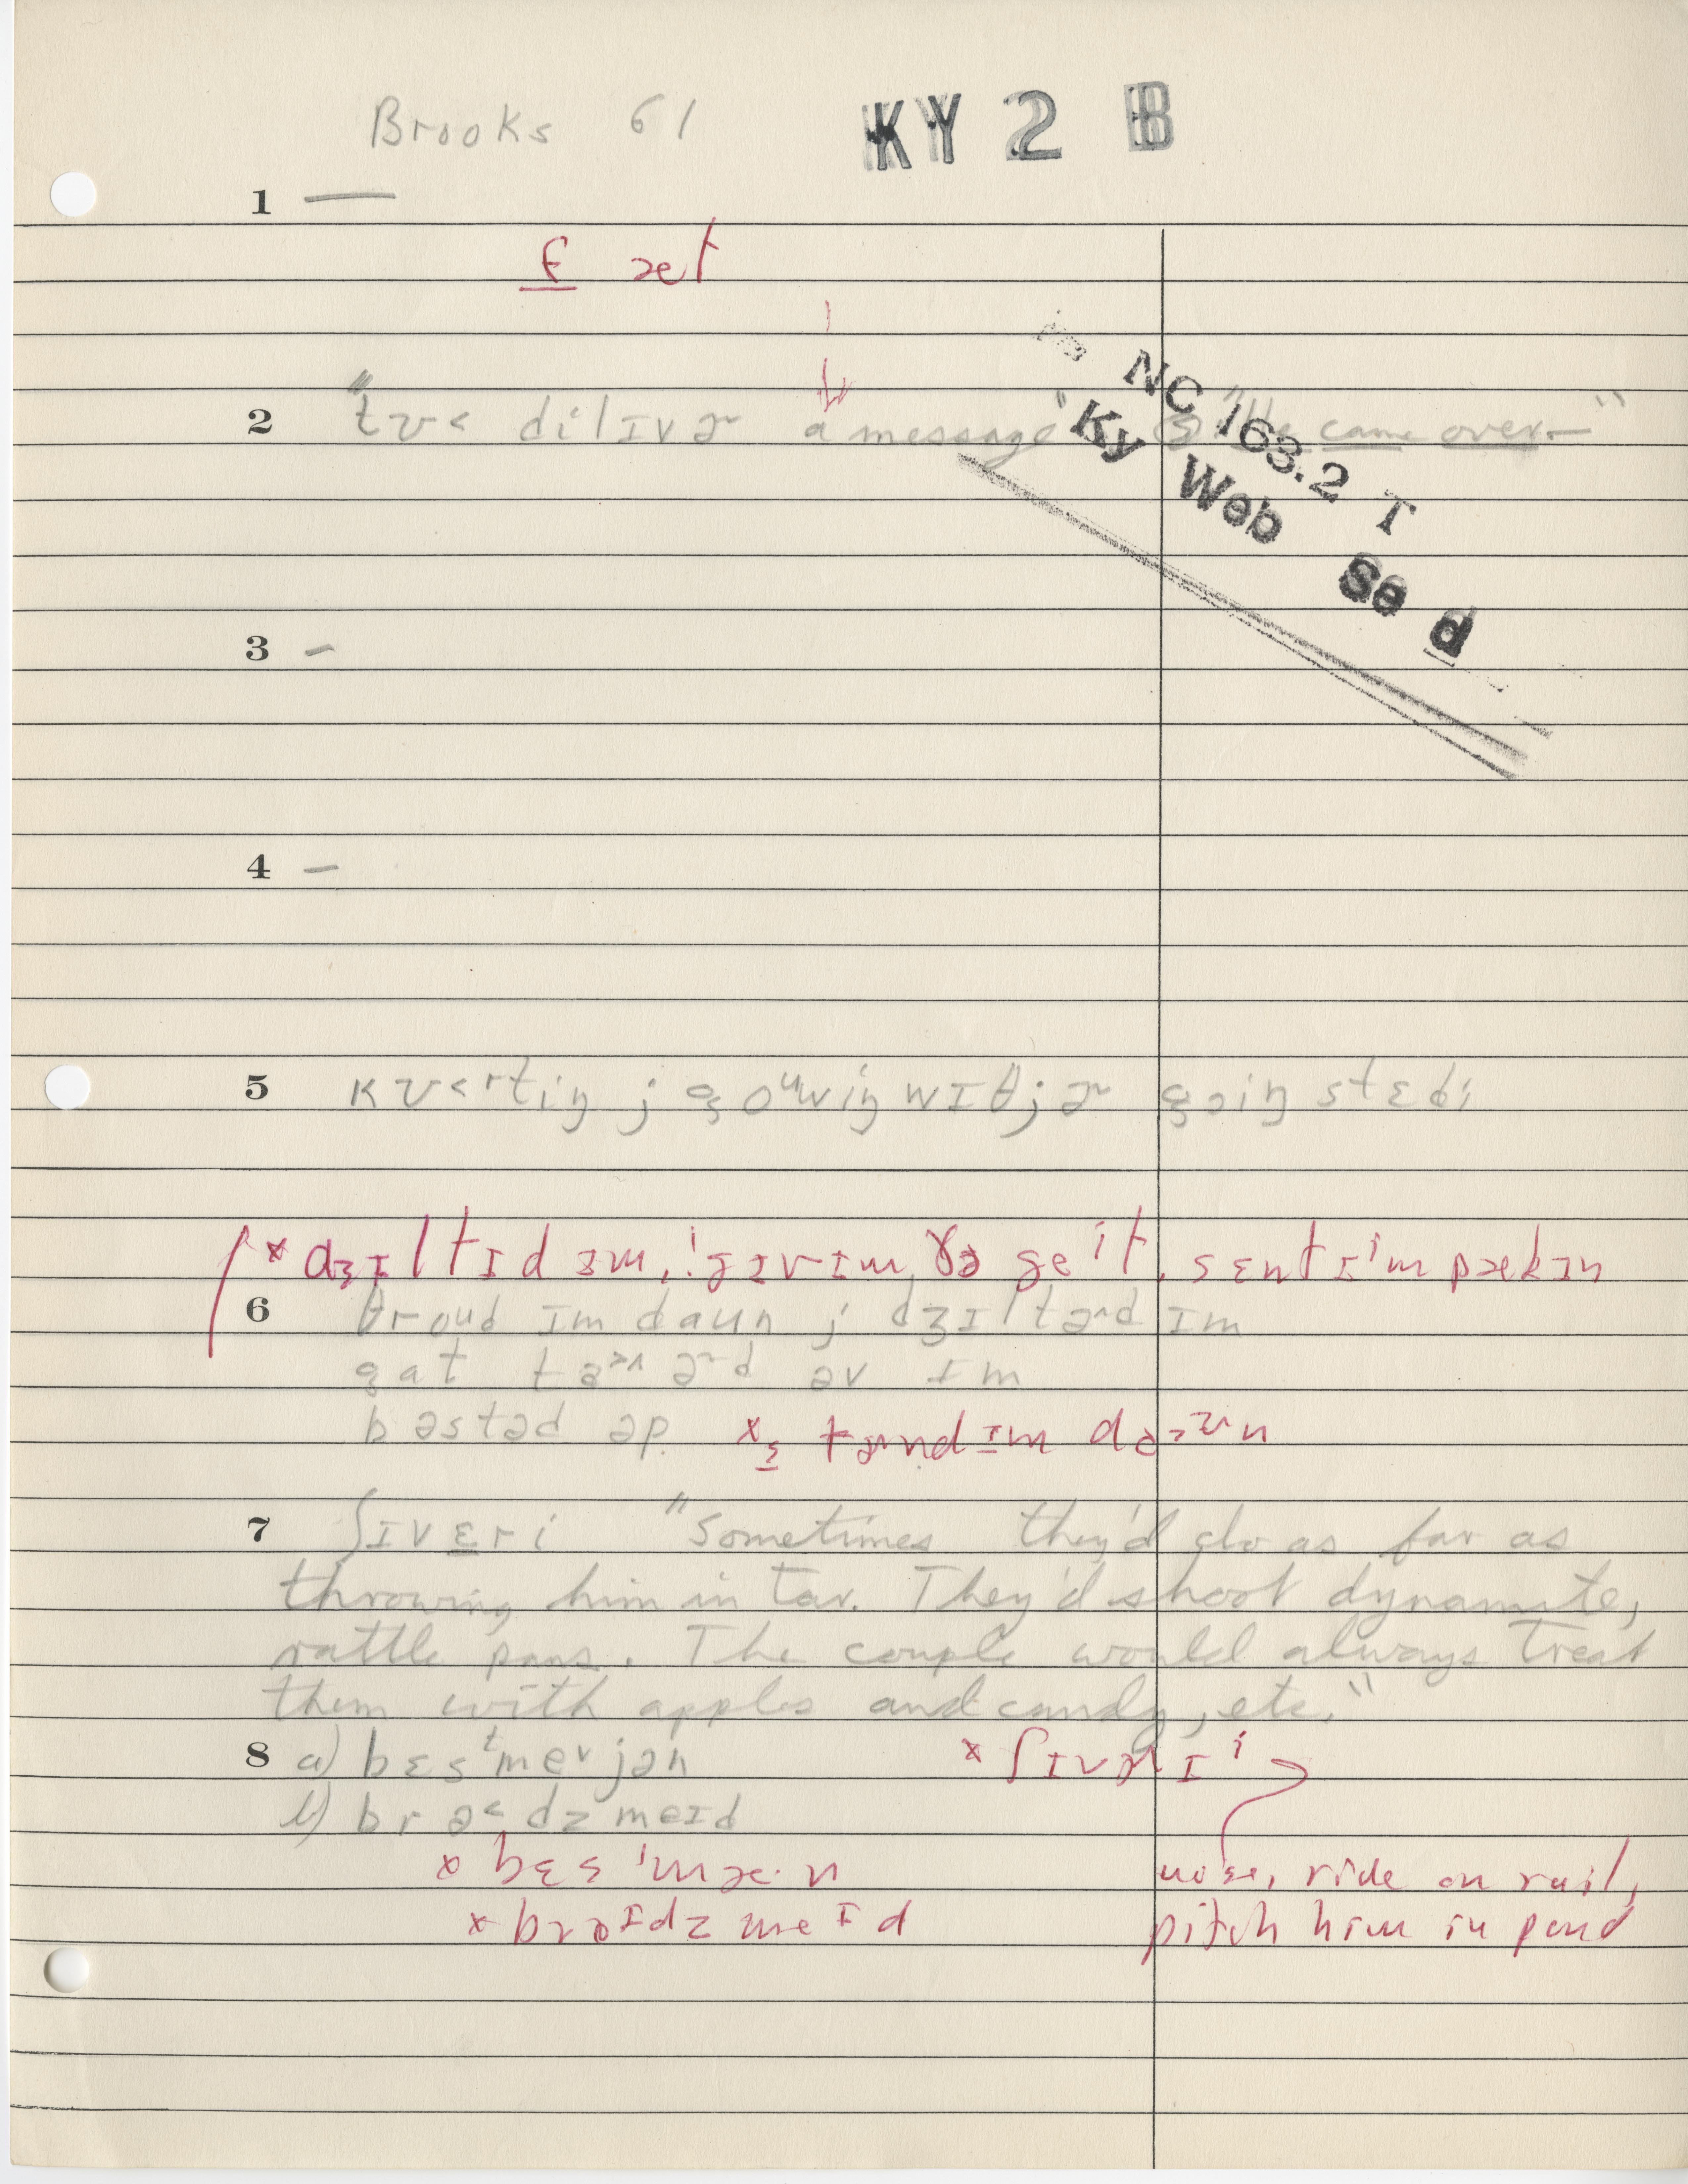 Brooks 61 KY 2 B
1 —
æt
2 "tʊ< dilɪvɚ a message" "He came over—"
NC 163.2 T
Ky Web Se d
3 –
4 –
5 kʊ<rtiŋ ; goᵘwiŋ wɪθ ; ɚ goiŋ stɛdi
* dʒɪltɪd ɪm, gɪvɪm ðə geⁱt, sɛnt ɪⁱm pækɪn
6 θroud ɪm daun ; dʒɪltɚd ɪm
gat taɚd əv ɪm
bəstəd əp. * tɚnd ɪm
7 ʃɪvɛri "Sometimes they'd go as far as
throwing him in tar. They'd shoot dynamite,
rattle pans. The couple would always treat
them with apples and candy, etc."
8 a) bɛsᵗmevjən * ʃɪvɚɪⁱ
b) brə<dzmeɪd
* bɛs'mæ·n noise, ride on rail,
pitch him in pond